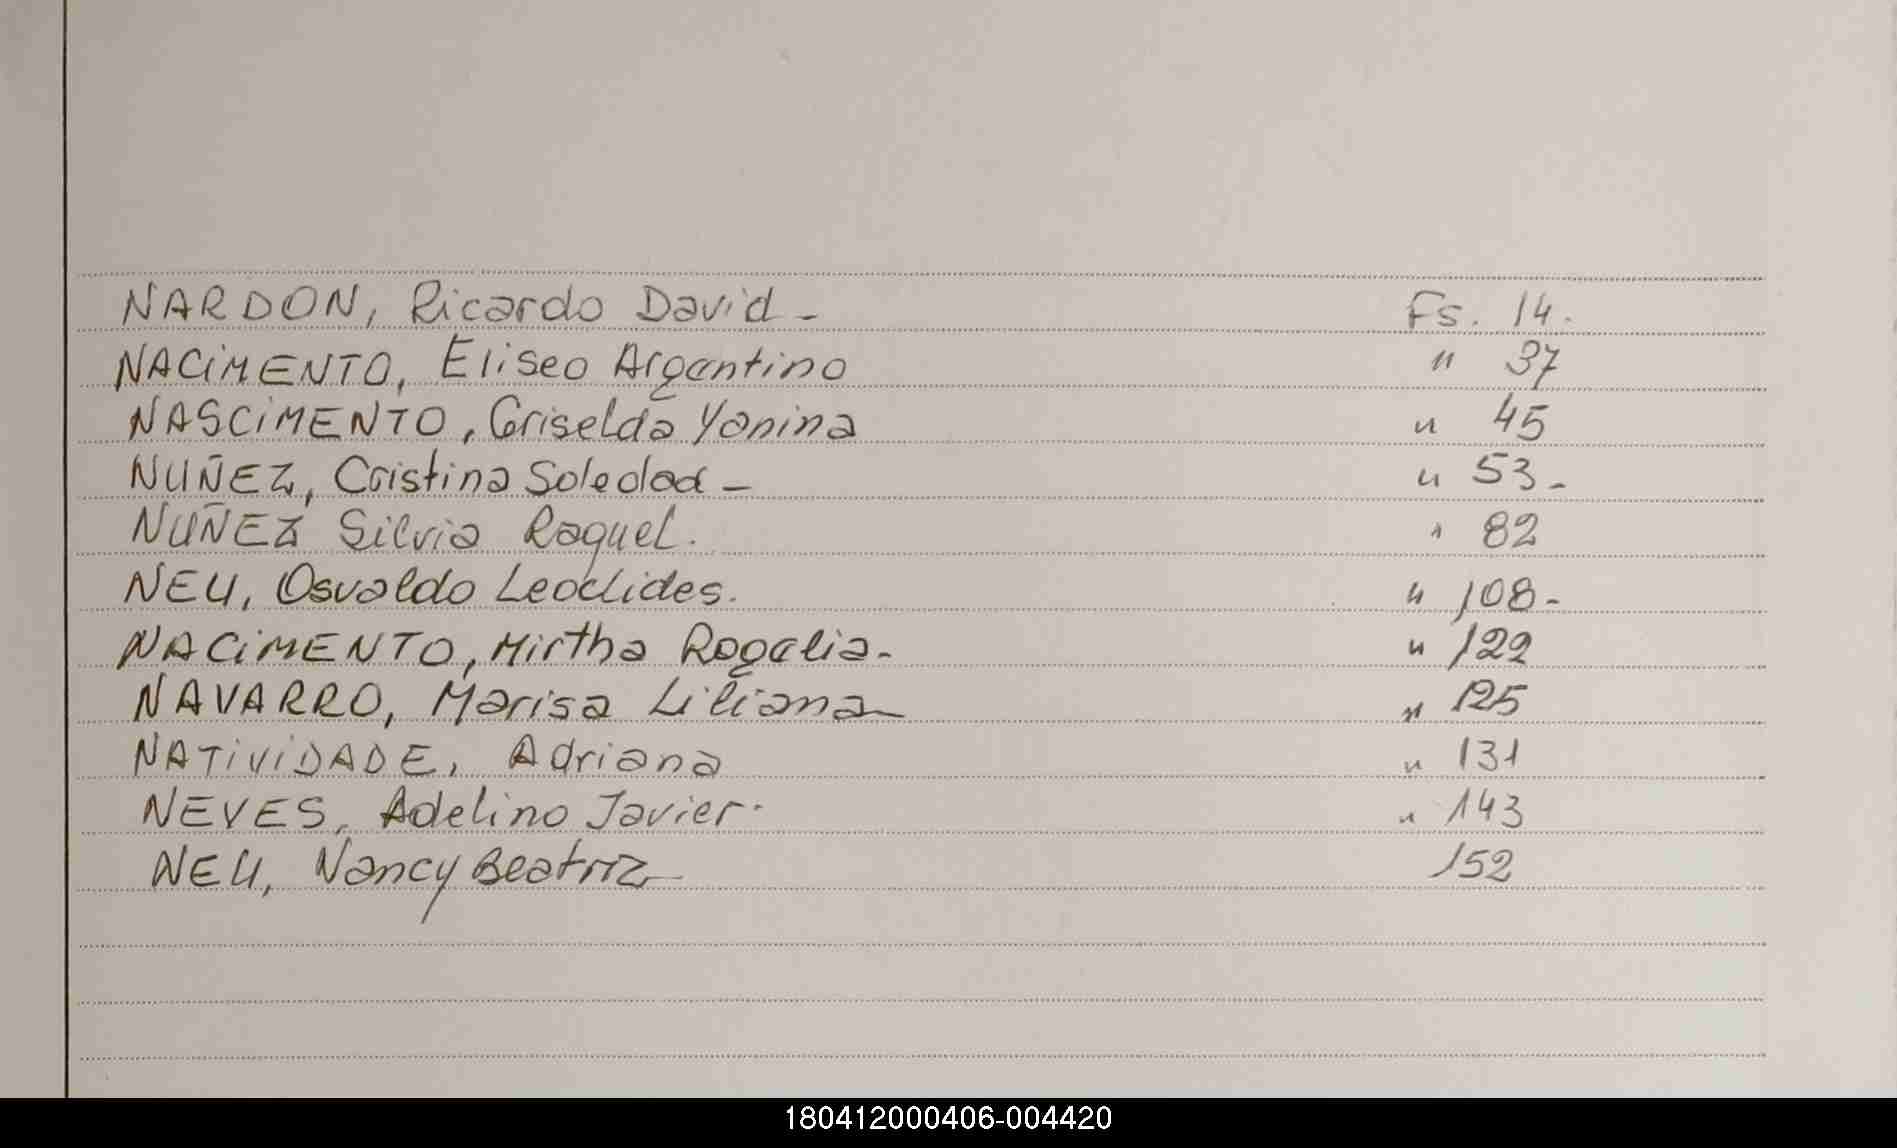 NARDON, Ricardo David - Fs. 14.
NACIMENTO, Eliseo Argentino " 37
NASCIMENTO, Griselda Yanina " 45
NUÑEZ, Cristina Soledad - " 53 -
NUÑEZ Silvia Raquel. " 82
NEU, Osvaldo Leoclides. " 108 -
NACIMENTO, Mirtha Rogelia - " 122
NAVARRO, Marisa Liliana " 125
NATIVIDADE, Adriana " 131
NEVES, Adelino Javier. " 143
NEU, Nancy Beatriz 152
180412000406-004420